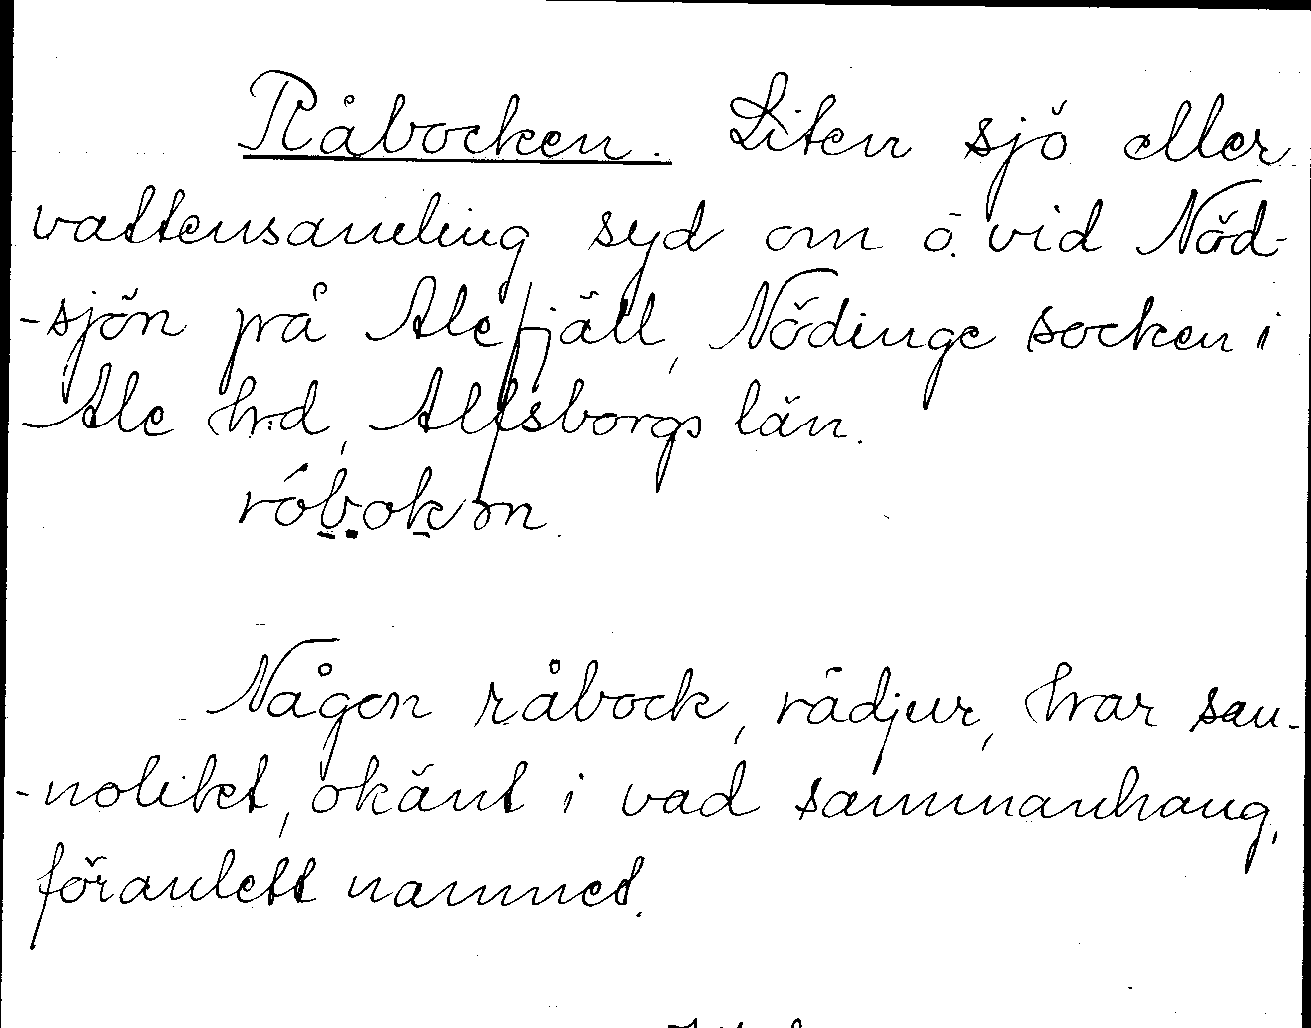 Råbocken. Liten sjö eller
vattensamling syd om o. vid Nöd-
-sjön på Alefjäll, Nödinge socken i
Ale hrd, Alfsborgs län.
råbokən.
Någon råbock, rådjur, har san-
-nolikt, okänt i vad sammanhang,
föranlett namnet.